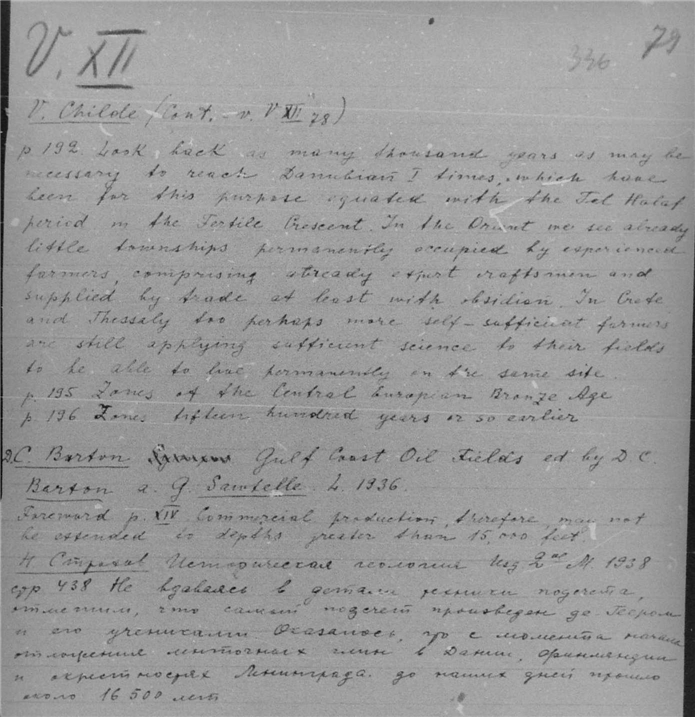 V. XII
336 79
V. Childe (Cont. - v. V XII 78)
p. 192 Look back as many thousand years as may be
necessary to reach Danubian I times, which have
been for this purpose equated with the Tel Halaf
period in the Fertile Crescent. In the Orient we see already
little townships permanently occupied by experienced
farmers, comprising already expert craftsmen and
supplied by trade at least with obsidian. In Crete
and Thessaly too perhaps more self-sufficient farmers
are still applying sufficient science to their fields
to be able to live permanently on the same site.
p. 195 Zones of the Central European Bronze Age
p. 196 Zones fifteen hundred years or so earlier
D.C. Barton Gulf Coast Oil Fields ed by D. C.
Barton a. G. Sawtelle L. 1936.
Foreword p. XIV Commercial production, therefore, may not
be extended to depths greater than 15,000 feet.
Н Страхов Историческая геология Изд 2ое М 1938
стр. 438 Не вдаваясь в детали техники подсчета,
отметим, что самый подсчет произведен де-Геером
и его учениками Оказалось, что с момента начала
отложения ленточных глин в Дании, Финляндии
и окрестностях Ленинграда до наших дней прошло
около 16 500 лет